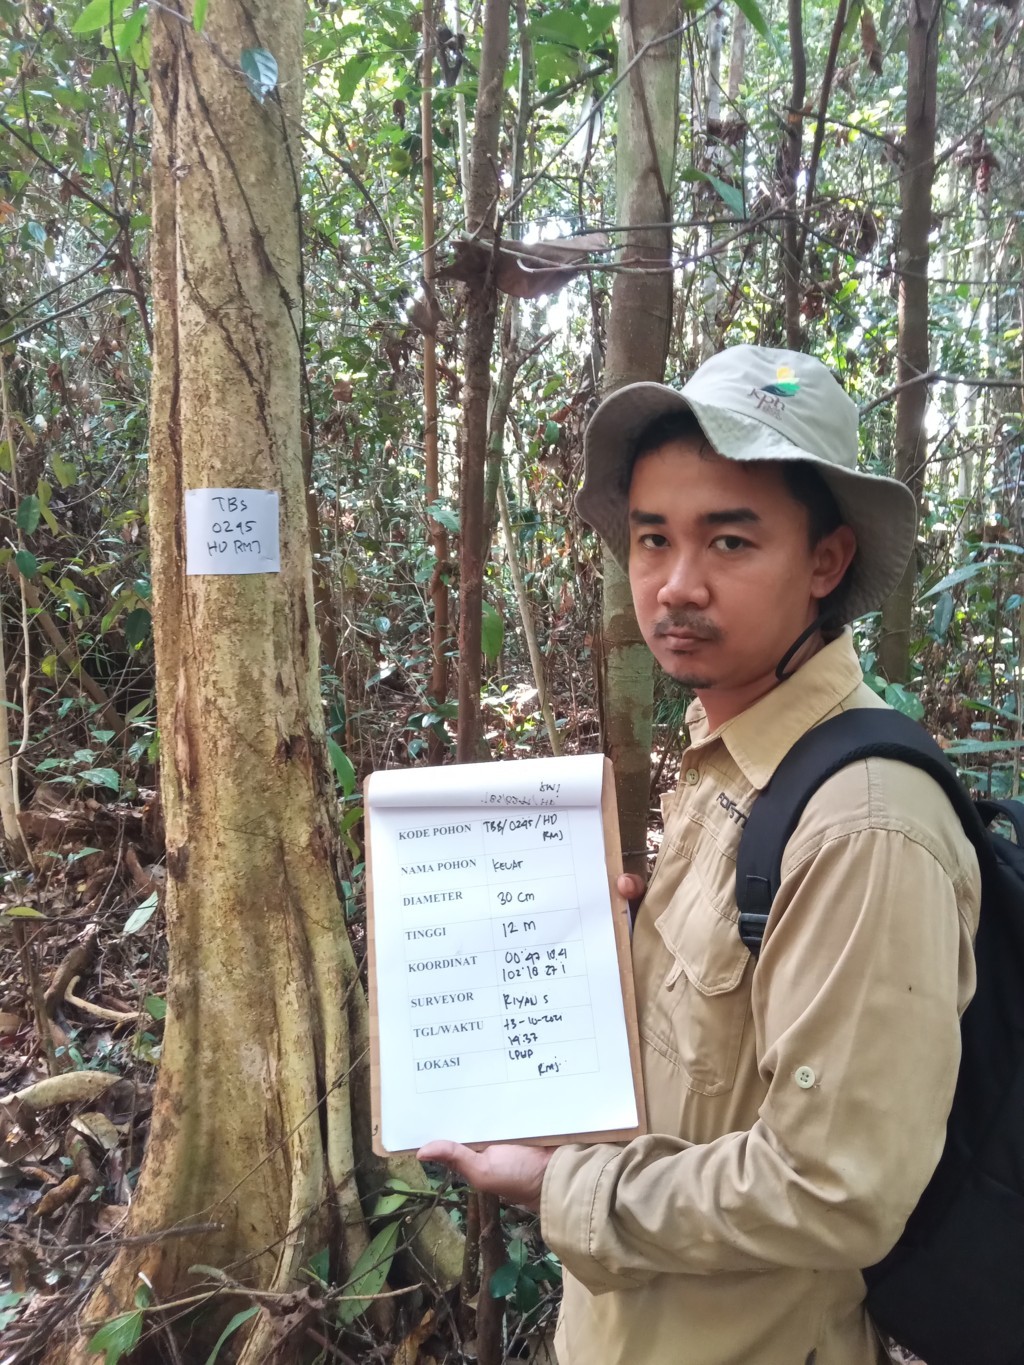 TBS
0295
HD RMJ
kph
KODE POHON TBS/0295/HD
RMJ
NAMA POHON KEUAT
DIAMETER 30 cm
TINGGI 12 M
KOORDINAT 00°47 18.41
102°18 27 1
SURVEYOR RIYAN S
TGL/WAKTU 13-10-2021
14:37
LOKASI LPHD
RMJ.